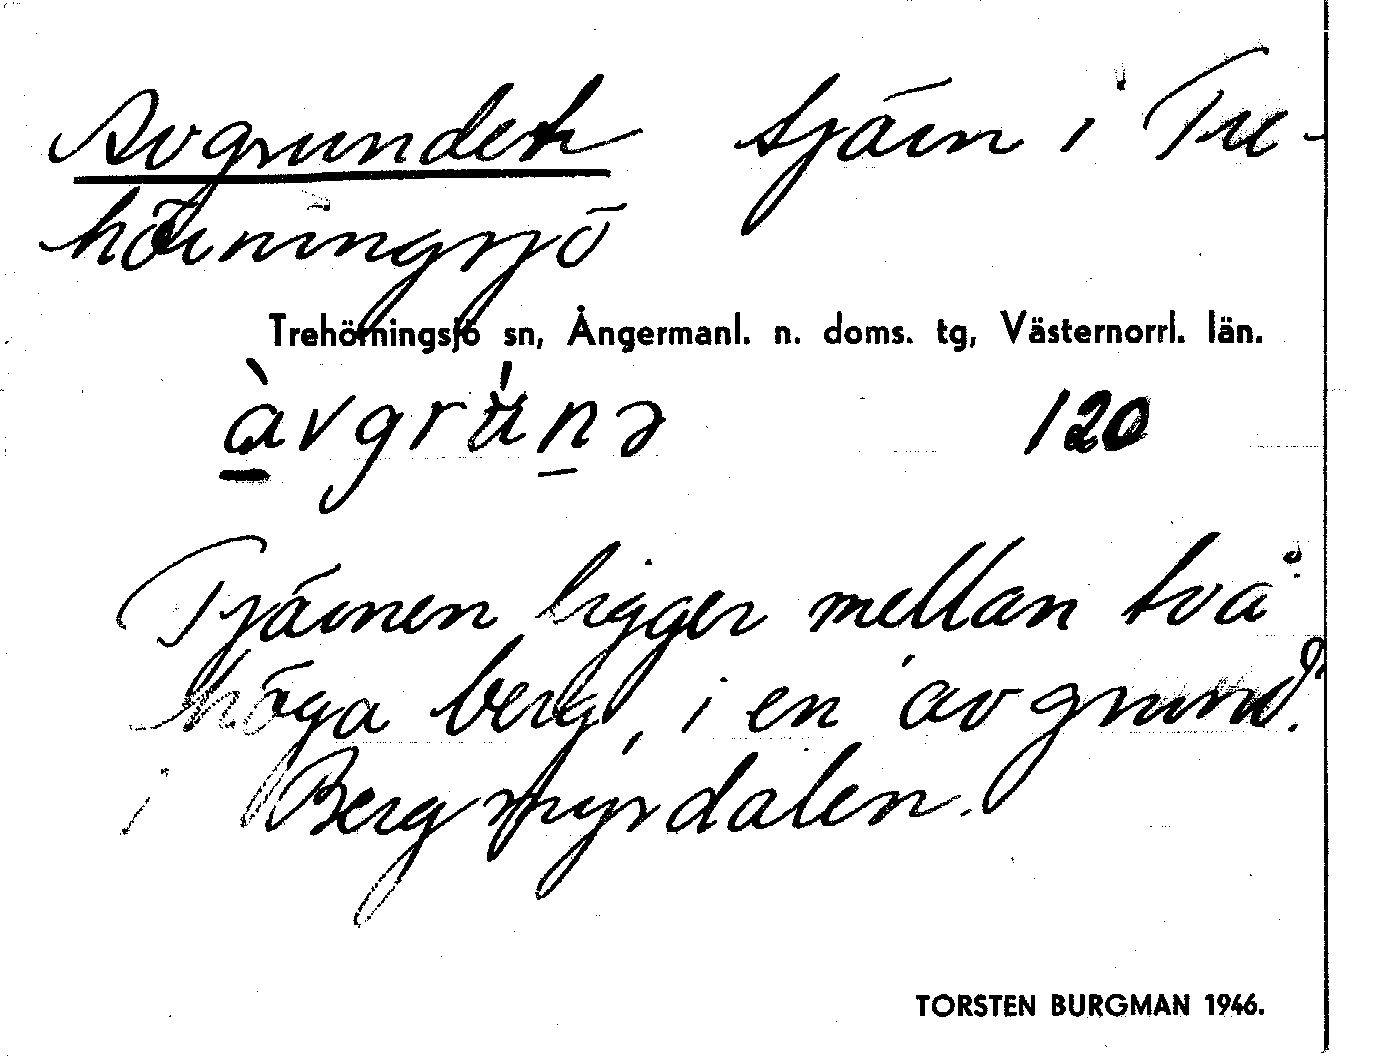 Avgrundet tjärn i Tre-
hörningsjö
Trehörningsjö sn, Ångermanl. n. doms. tg, Västernorrl. län.
àvgrünə 120
Tjärnen ligger mellan två
höga berg, i en 'avgrund'.
i Bergmyrdalen.
TORSTEN BURGMAN 1946.